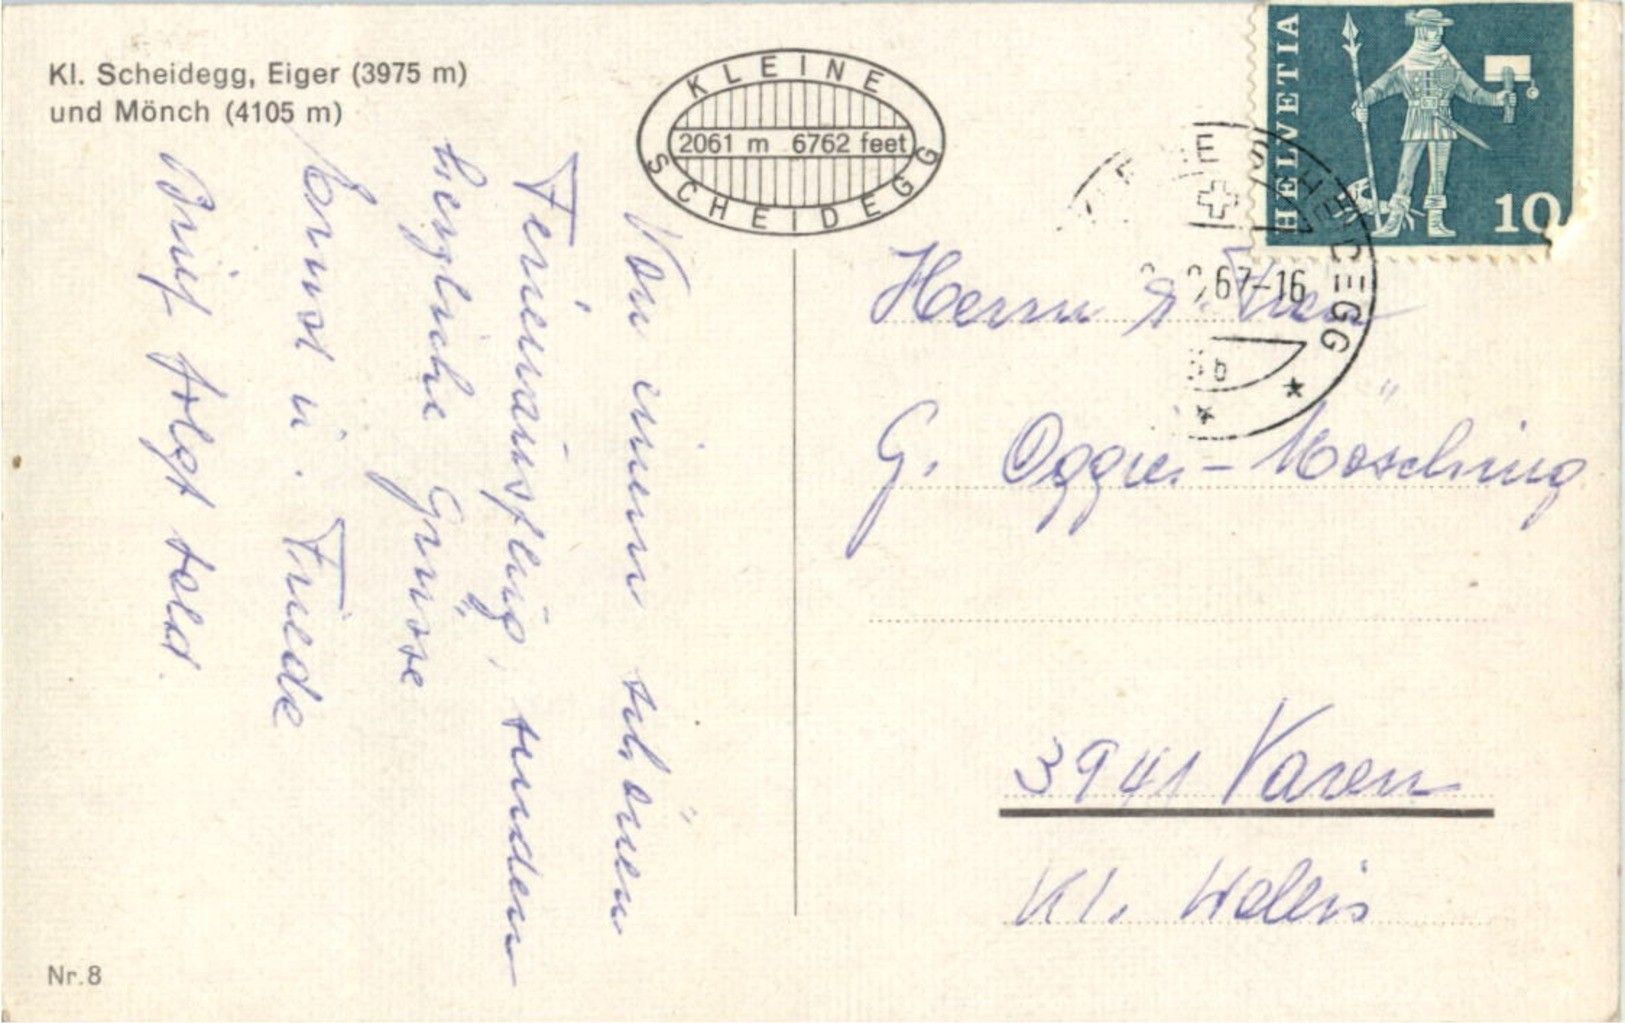 Kl. Scheidegg, Eiger (3975 m)
und Mönch (4105 m)
KLEINE
2061 m 6762 feet
SCHEIDEGG
HELVETIA
10
SCHEIDEGG
67-16
Von einem schönen
Ferienausflug, senden
herzliche Grüsse
Ernst u. Friede
Brief folgt bald.
Herrn u. Frau
G. Oggier-Mösching
3941 Varen
Kt. Wallis
Nr. 8